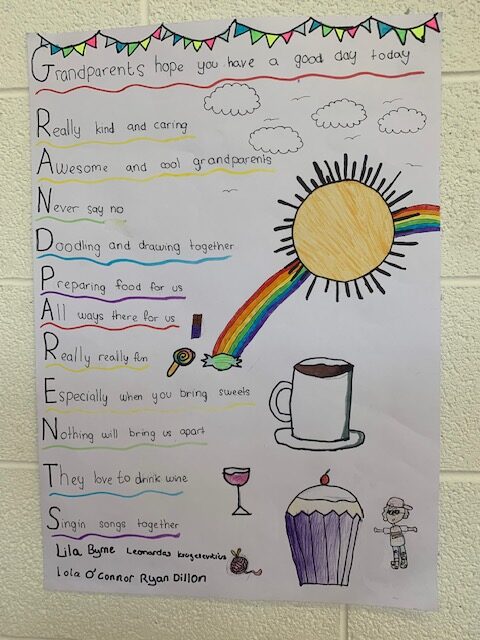 Grandparents hope you have a good day today
Really kind and caring
Awesome and cool grandparents
Never say no
Doodling and drawing together
Preparing food for us
All ways there for us
Really really fun
Especially when you bring sweets
Nothing will bring us apart
They love to drink wine
Singin songs together
Lila Byrne Leonardas
Lola O'Connor Ryan Dillon